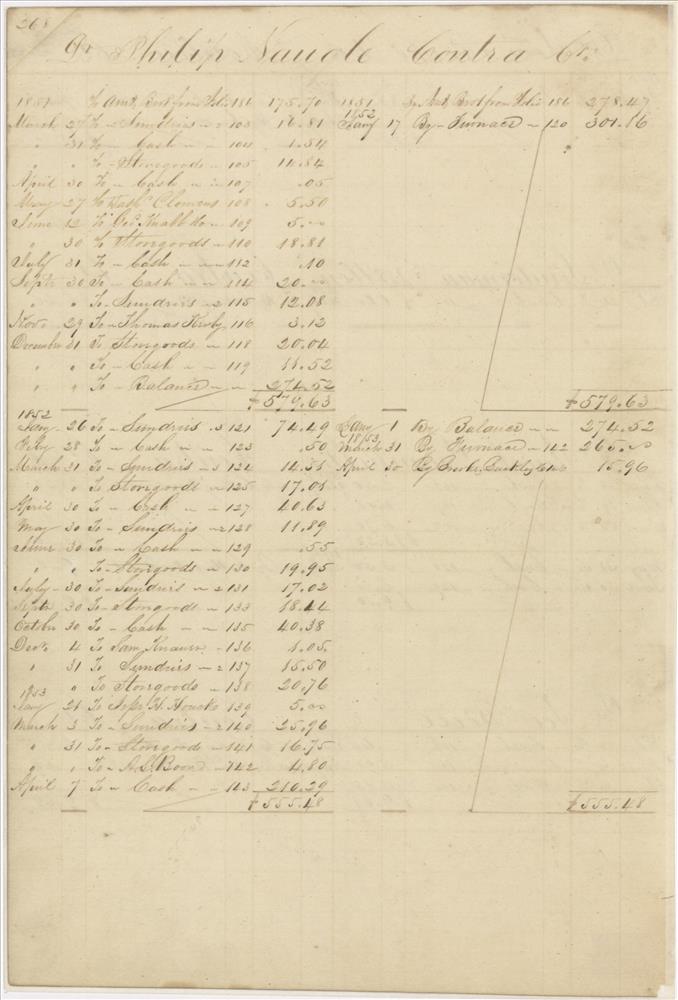 268
Dr Philip Naugle Contra Cr.
1851 To Amt. Brot from Folio 186 175.70 1851 By Amt. Brot from Folio 186 278.47
March 27 To Sundries 103 16.81 1852 Jany 17 By Furnace 120 301.16
" 31 To Cash 104 1.34
" " To Storegoods 105 14.84
April 30 To Cash 107 .05
May 27 To Clemens 108 5.50
June 12 To Geo. Knabb 109 5.00
" 30 To Storegoods 110 18.81
July 31 To Cash 112 .10
Septr 30 To Cash 114 20.00
" " To Sundries 2 115 12.08
Nov. 29 To Thomas Kirby 116 3.12
December 31 To Storegoods 118 20.04
" " To Cash 119 11.52
" " To Balance 274.52
$579.63 $579.63
1852
Jany 26 To Sundries 3 121 74.49 Jany 1 By Balance 274.52
Feby 28 To Cash 123 .50 1853 March 31 By Furnace 142 265.00
March 31 To Sundries 3 124 14.51 April 30 By Brooke, Buckley 15.96
" " To Storegoods 125 17.01
April 30 To Cash 127 40.63
May 30 To Sundries 2 128 11.89
June 30 To Cash 129 .55
" " To Storegoods 130 19.95
July 30 To Sundries 2 131 17.02
Septr 30 To Storegoods 133 18.44
October 30 To Cash 135 40.38
Decr. 4 To Saml Knauer 136 1.05
" 31 To Sundries 2 137 15.50
" " To Storegoods 138 20.76
1853
Jany 21 To H. Houck 139 5.00
March 3 To Sundries 2 140 25.96
" 31 To Storegoods 141 16.75
" " To Boone 142 4.80
April 7 To Cash 143 210.29
$555.48 $555.48